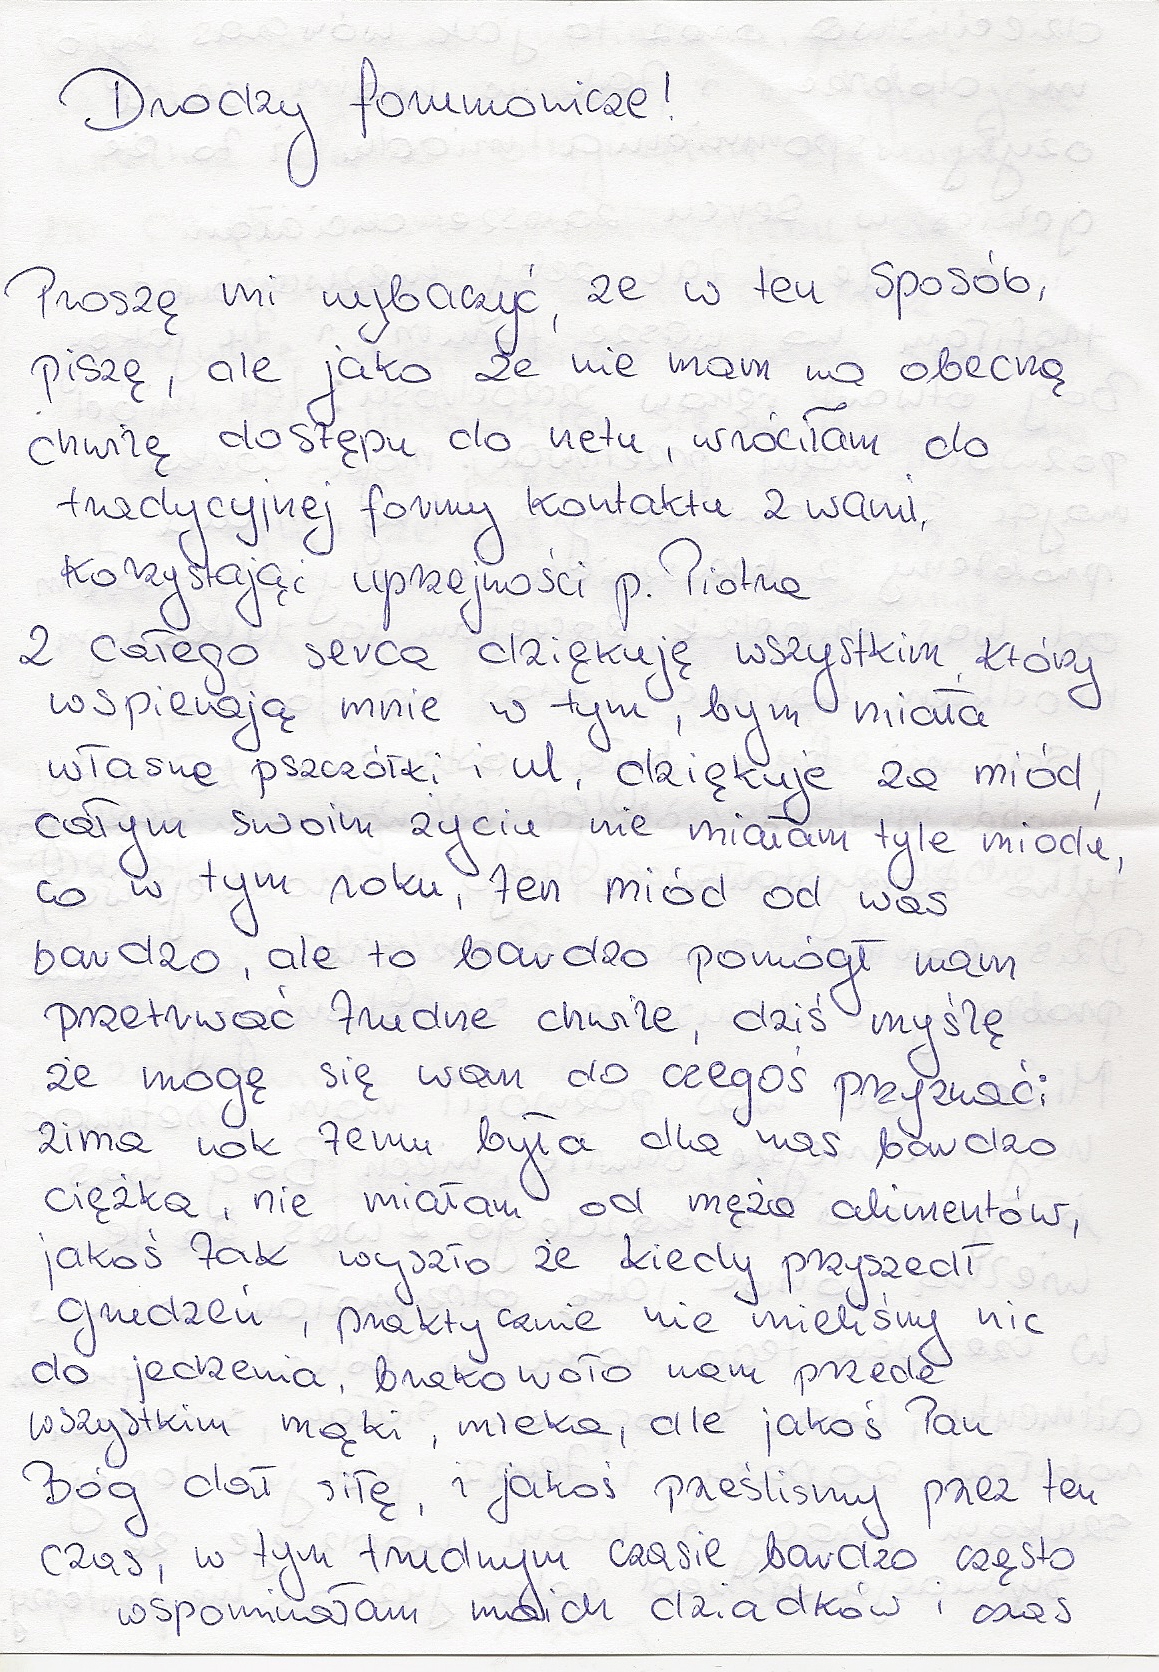 Drodzy forumowicze!
Proszę mi wybaczyć, że w ten sposób,
piszę, ale jako że nie mam na obecną
chwilę dostępu do netu, wróciłam do
tradycyjnej formy kontaktu z wami,
korzystając uprzejmości p. Piotra
Z całego serca dziękuję wszystkim, którzy
wspierają mnie w tym, bym miała
własne pszczółki i ul, dziękuje za miód,
całym swoim życiu nie miałam tyle miodu,
co w tym roku, ten miód od was
bardzo, ale to bardzo pomógł nam
przetrwać trudne chwile, dziś myślę
że mogę się wam do czegoś przyznać:
zima rok temu była dla nas bardzo
ciężka, nie miałam od męża alimentów,
jakoś tak wyszło że kiedy przyszedł
grudzeń, praktycznie nie mieliśmy nic
do jedzenia, brakowało nam przede
wszystkim mąki, mleka, ale jakoś Pan
Bóg dał siłę, i jakoś prześlismy przez ten
czas, w tym trudnym czasie bardzo często
wspominałam moich dziadków i czas